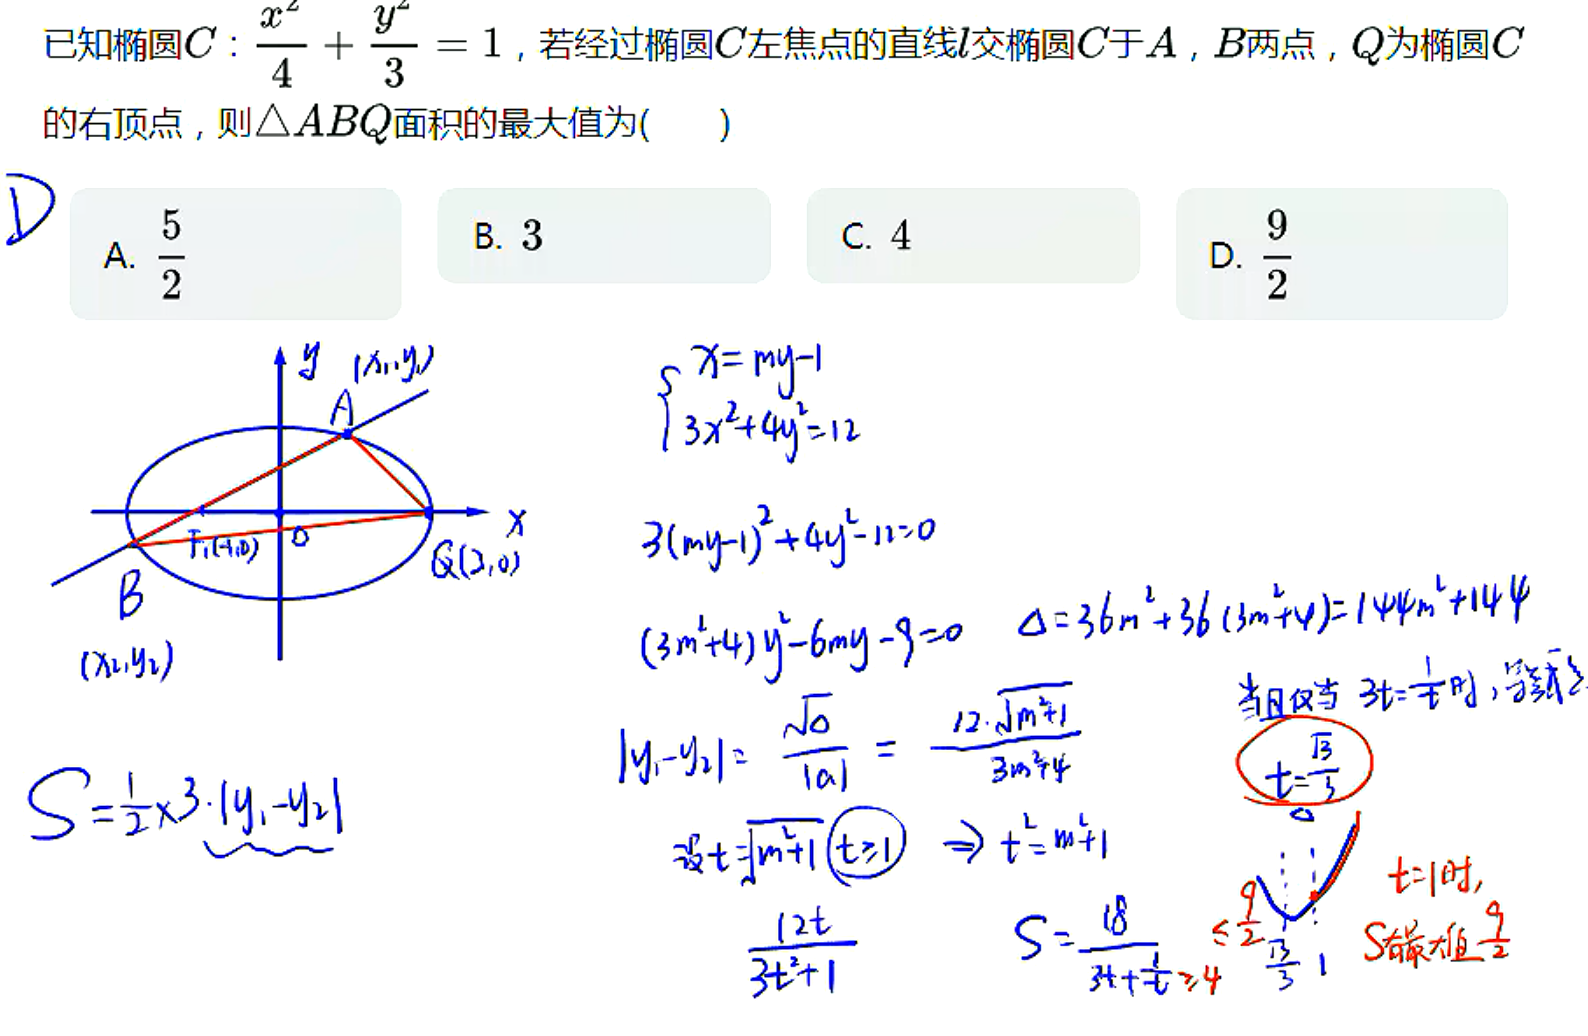 已知椭圆C：x²/4 + y²/3 = 1，若经过椭圆C左焦点的直线l交椭圆C于A，B两点，Q为椭圆C
的右顶点，则△ABQ面积的最大值为(  )
D
A. 5/2
B. 3
C. 4
D. 9/2
y
(x₁,y₁)
A
x
F₁(-1,0)
O
Q(2,0)
B
(x₂,y₂)
S=1/2×3·|y₁-y₂|
{ x=my-1
3x²+4y²=12
3(my-1)²+4y²-12=0
(3m²+4)y²-6my-9=0
Δ=36m²+36(3m²+4)=144m²+144
|y₁-y₂|= √Δ/|a| = 12·√(m²+1)/(3m²+4)
设t=√(m²+1) (t≥1) ⇒ t²=m²+1
12t/(3t²+1)
S=18/(3t+1/t) ≥4 ≤9/2
当且仅当 3t=1/t时，
t=√3/3
√3/3 1
t=1时，
S有最大值 9/2